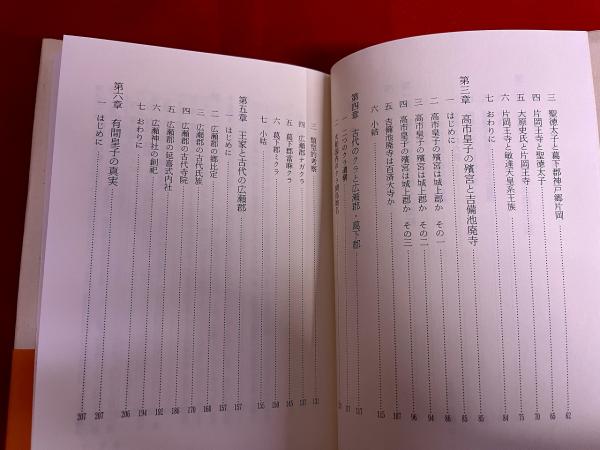 三 聖徳太子と葛下郡神戸郷片岡 62
四 片岡王寺と聖徳太子 65
五 大原史氏と片岡王寺 70
六 片岡王寺と敏達天皇系王族 75
七 おわりに 84
第三章 高市皇子の殯宮と吉備池廃寺 85
一 はじめに 85
二 高市皇子の殯宮は城上郡か その一 86
三 高市皇子の殯宮は城上郡か その二 94
四 高市皇子の殯宮は城上郡か その三 96
五 吉備池廃寺は百済大寺か 107
六 小結 115
第四章 古代のクラと広瀬郡・葛下郡 117
一 二つのクラ遺構 117
三 類型的考察 131
四 広瀬郡ナガクラ 137
五 葛下郡當麻クラ 145
六 葛下郡ミクラ 150
七 小結 155
第五章 王家と古代の広瀬郡 157
一 はじめに 157
二 広瀬郡の郷比定 160
三 広瀬郡の古代氏族 168
四 広瀬郡の古代寺院 170
五 広瀬郡の延喜式内社 186
六 広瀬神社の創祀 192
七 おわりに 194
206
第六章 有間皇子の真実 207
一 はじめに 207